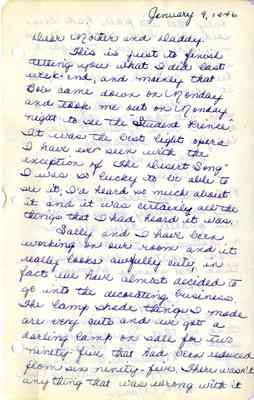 January 9, 1946
Dear Mother and Daddy,
This is just to finish
telling you what I did last
week-end, and mainly that
Bob came down on Monday
and took me out on Monday
night to see the Student Prince"
It was the best light opera
I have ever seen with the
exception of "The Desert Song"
I was so lucky to be able to
see it, I'd heard so much about
it and it was certainly all the
things that I had heard it was.
Sally and I have been
working on our room and it
really looks awfully cute, in
fact we have almost decided to
go into the decorating business.
The lamp shade things I made
are very cute and we got a
darling lamp on sale for two
ninety-five that had been reduced
from six ninety-five. There wasn't
anything that was wrong with it